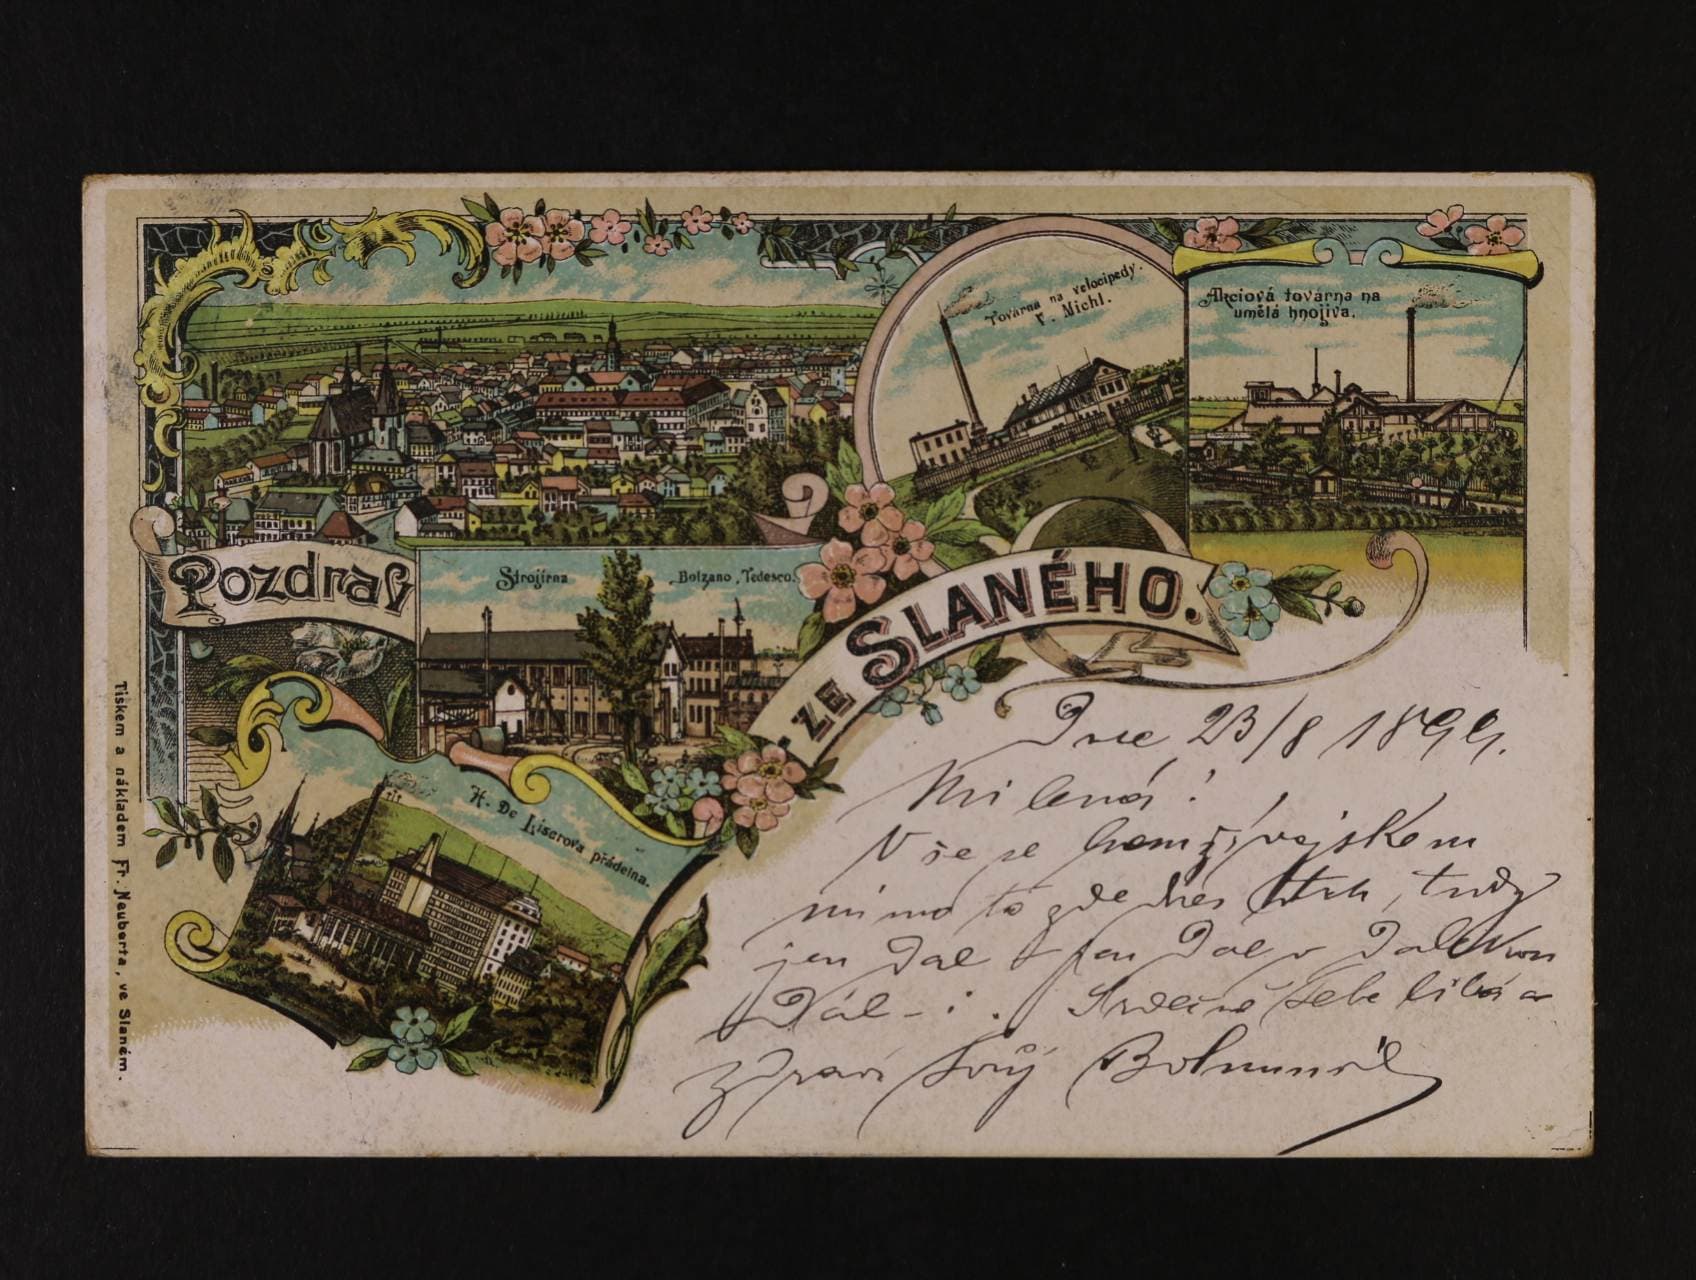 Továrna na velocipedy.
V. Michl.
Akciová továrna na
umělá hnojiva.
Pozdrav
ZE SLANÉHO.
Strojírna Bolzano, Tedesco.
H. De Liserova přádelna.
Tiskem a nákladem Fr. Neuberta, ve Slaném.
Dne 23/8 1899.
Milená!
Vše se hemží vojskem
mimo to zde dnes trh, tudy
jen dál
Dál - : . Srdečně Tebe líbá a
zdraví Tvůj